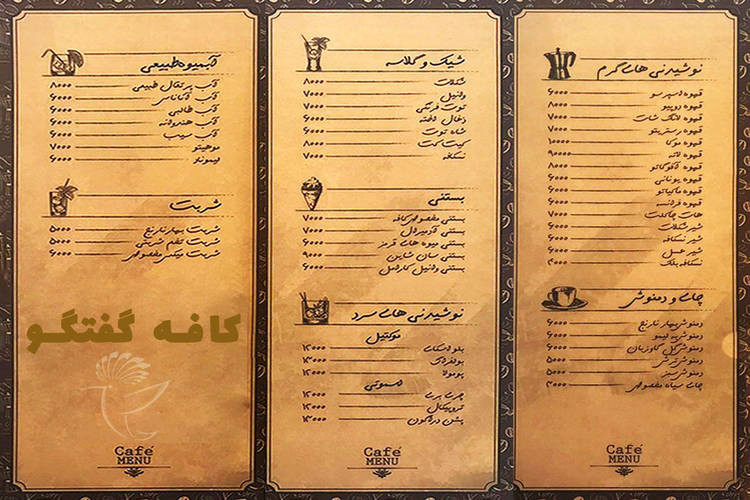 نوشیدنی های گرم
قهوه اسپرسو ۶۰۰۰
قهوه دوپیو ۸۰۰۰
قهوه لانگ شات ۷۰۰۰
قهوه رستریتو ۷۰۰۰
قهوه موکا ۱۰۰۰۰
قهوه لاته ۹۰۰۰
قهوه آفوگاتو ۸۰۰۰
قهوه یونانی ۶۰۰۰
قهوه ماکیاتو ۶۰۰۰
قهوه فرانسه ۶۰۰۰
هات چاکلت ۷۰۰۰
شیر شکلات ۶۰۰۰
شیر نسکافه ۶۰۰۰
شیر عسل ۶۰۰۰
نسکافه بلک ۴۰۰۰
چای و دمنوش
دمنوش بهار نارنج ۶۰۰۰
دمنوش به لیمو ۶۰۰۰
دمنوش گل گاوزبان ۶۰۰۰
دمنوش ترش ۵۰۰۰
دمنوش سبز ۵۰۰۰
چای سیاه مخصوص ۴۰۰۰
شیک و گلاسه
شکلات ۸۰۰۰
وانیل ۷۰۰۰
توت فرنگی ۷۰۰۰
ذغال اخته ۶۰۰۰
شاه توت ۶۰۰۰
کیت کت ۸۰۰۰
نسکافه ۷۰۰۰
بستنی
بستنی مخصوص کافه ۷۰۰۰
بستنی
بستنی میوه های قرمز ۶۰۰۰
بستنی سان شاین ۹۰۰۰
بستنی وانیل کارامل ۶۰۰۰
نوشیدنی های سرد
موکتیل
بلو اسکای ۱۲۰۰۰
۱۲۰۰۰
۱۲۰۰۰
اسموتی
چری بری ۱۲۰۰۰
تروپیکال ۱۲۰۰۰
پشن دراگون ۱۲۰۰۰
Café
MENU
آبمیوه طبیعی
آب پرتقال طبیعی ۸۰۰۰
آب آناناس ۶۰۰۰
آب طالبی ۶۰۰۰
آب هندوانه ۶۰۰۰
آب سیب ۶۰۰۰
موهیتو ۷۰۰۰
لیموناد ۶۰۰۰
شربت
شربت بهار نارنج ۵۰۰۰
شربت تخم شربتی ۵۰۰۰
شربت میکس مخصوص ۶۰۰۰
کافه گفتگو
Café
MENU
Café
MENU